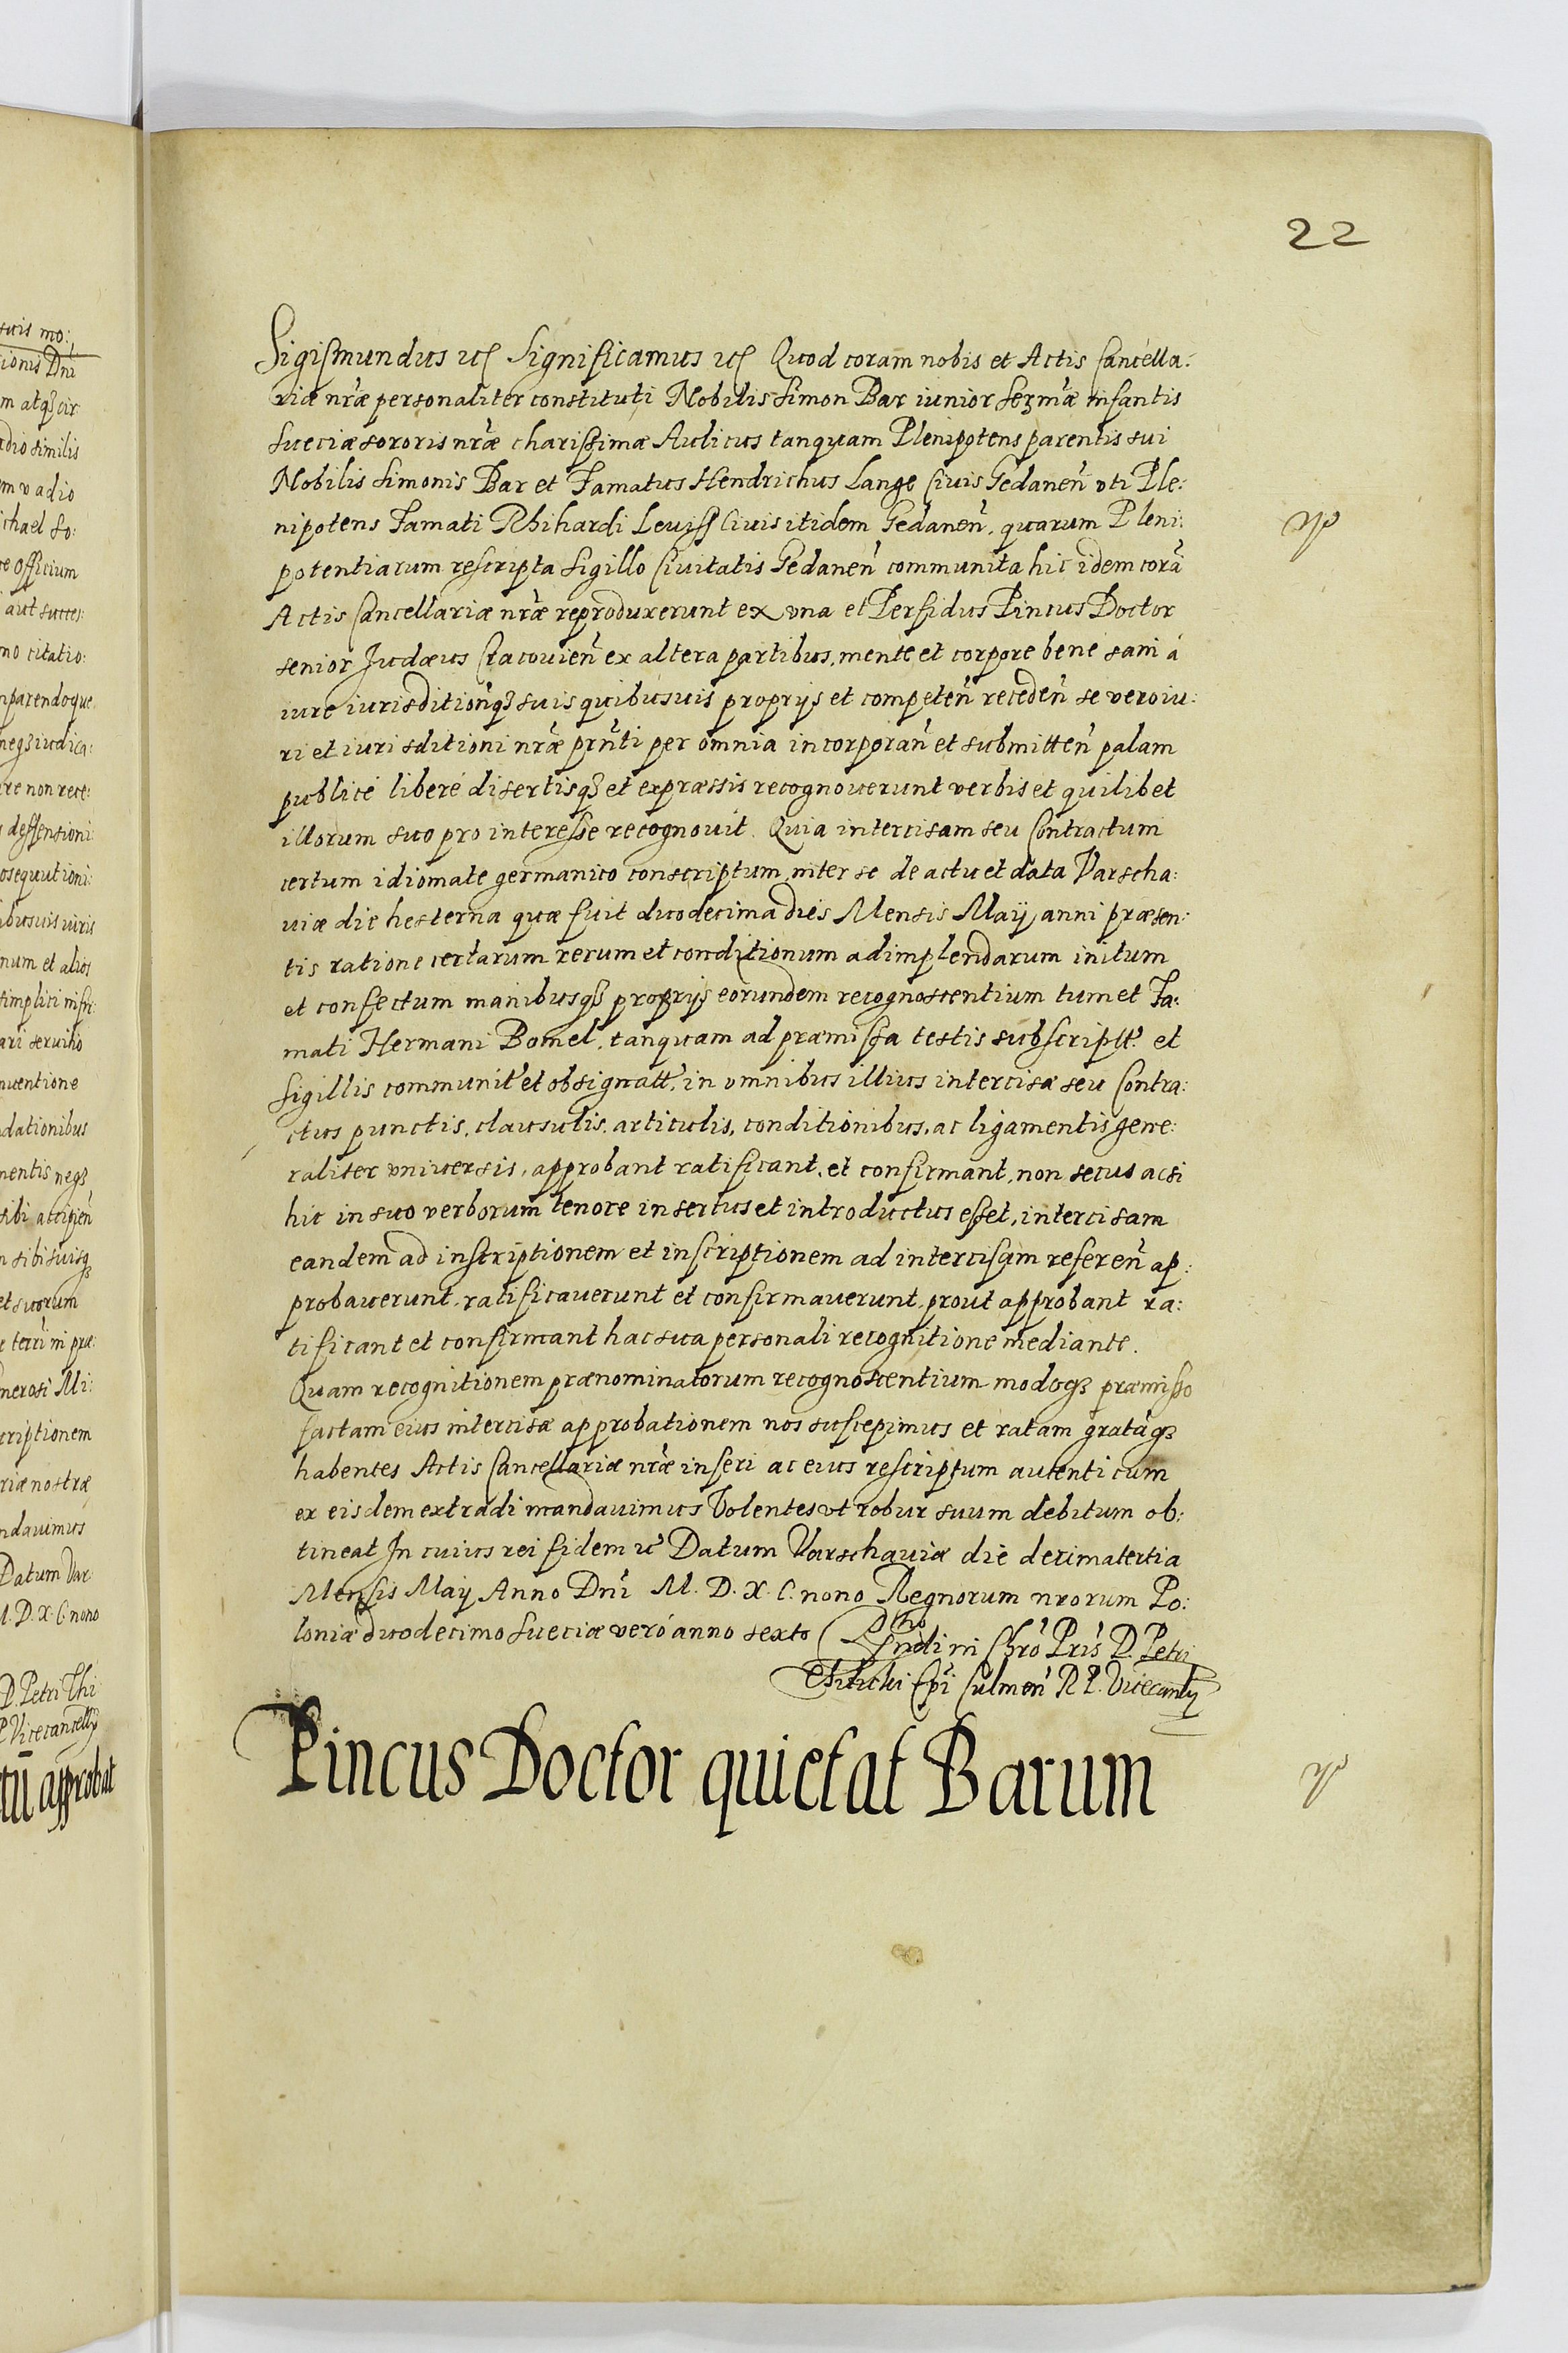 22
Sigismundus etc Significamus etc Quod coram nobis et Actis Cancella:
riæ nr̃æ personaliter constituti Nobilis Simon Bar iunior Serm̃æ infantis
Sueciæ sororis nr̃æ charissimæ Aulicus tanquam Plenipotens parentis sui
Nobilis Simonis Bar et Famatus Hendrichus Lange Civis Gedaneñ vti Ple:
nipotens Famati Rhihardi Leviss Civis itidem Gedaneñ, quarum Pleni:
potentiarum rescripta Sigillo Civitatis Gedaneñ communita hic idem corã
Actis Cancellariæ nr̃æ reproduxerunt ex vna et Perfidus Pincus Doctor
senior Judæus Cracovieñ ex altera partibus, mente et corpore bene sani á
iure iurisditioñqꝫ suis quibusuis proprijs et competeñ recedeñ se vero iu:
ri et iurisditioni nr̃æ prñti per omnia incorporañ et submitteñ palam
publicé liberé disertisqꝫ et expræssis recognouerunt verbis et quilibet
illorum suo pro interesse recognovit. Quia intercisam seu Contractum
certum idiomate germanico conscriptum, inter se de actu et data Varscha:
uiæ die hesterna quæ fuit duodecima dies Mensis Maij anni præsen:
tis ratione certarum rerum et conditionum adimplendarum initum
et confectum manibusqꝫ proprijs eorundem recognoscentium tum et Fa:
mati Hermani Bomel, tanquam ad præmissa testis subscriptt̃ et
Sigillis communit̃ et obsignatt̃, in omnibus illius intercisæ seu Contra:
ctus punctis, clausulis, articulis, conditionibus, ac ligamentis gene:
raliter vniuersis, approbant ratificant, et confirmant, non secus ac si
hic in suo verborum tenore insertus et introductus esset, intercisam
eandem ad inscriptionem et inscriptionem ad intercisam refereñ ap:
probauerunt, ratificauerunt et confirmauerunt, prout approbant ra:
tificant et confirmant hac sua personali recognitione mediante.
Quam recognitionem prænominatorum recognoscentium modoqꝫ præmisso
factam eius intercisæ approbationem nos suscepimus et ratam gratãqꝫ
habentes Actis Cancellariæ nr̃æ inseri ac eius rescriptum autenticum
ex eisdem extradi mandauimus Volentes vt robur suum debitum ob:
tineat In cuius rei fidem etc Datum Varschauiæ die decima tertia
Mensis Maij Anno Dñi M. D. X. C. nono Regnorum nrorum Po:
loniæ duodecimo Sueciæ veró anno sexto
Rndi in Chrõ Pris̃ D. Petri
Tilicki Epĩ Culmeñ R P. Vicecancly
Pincus Doctor quietat Barum